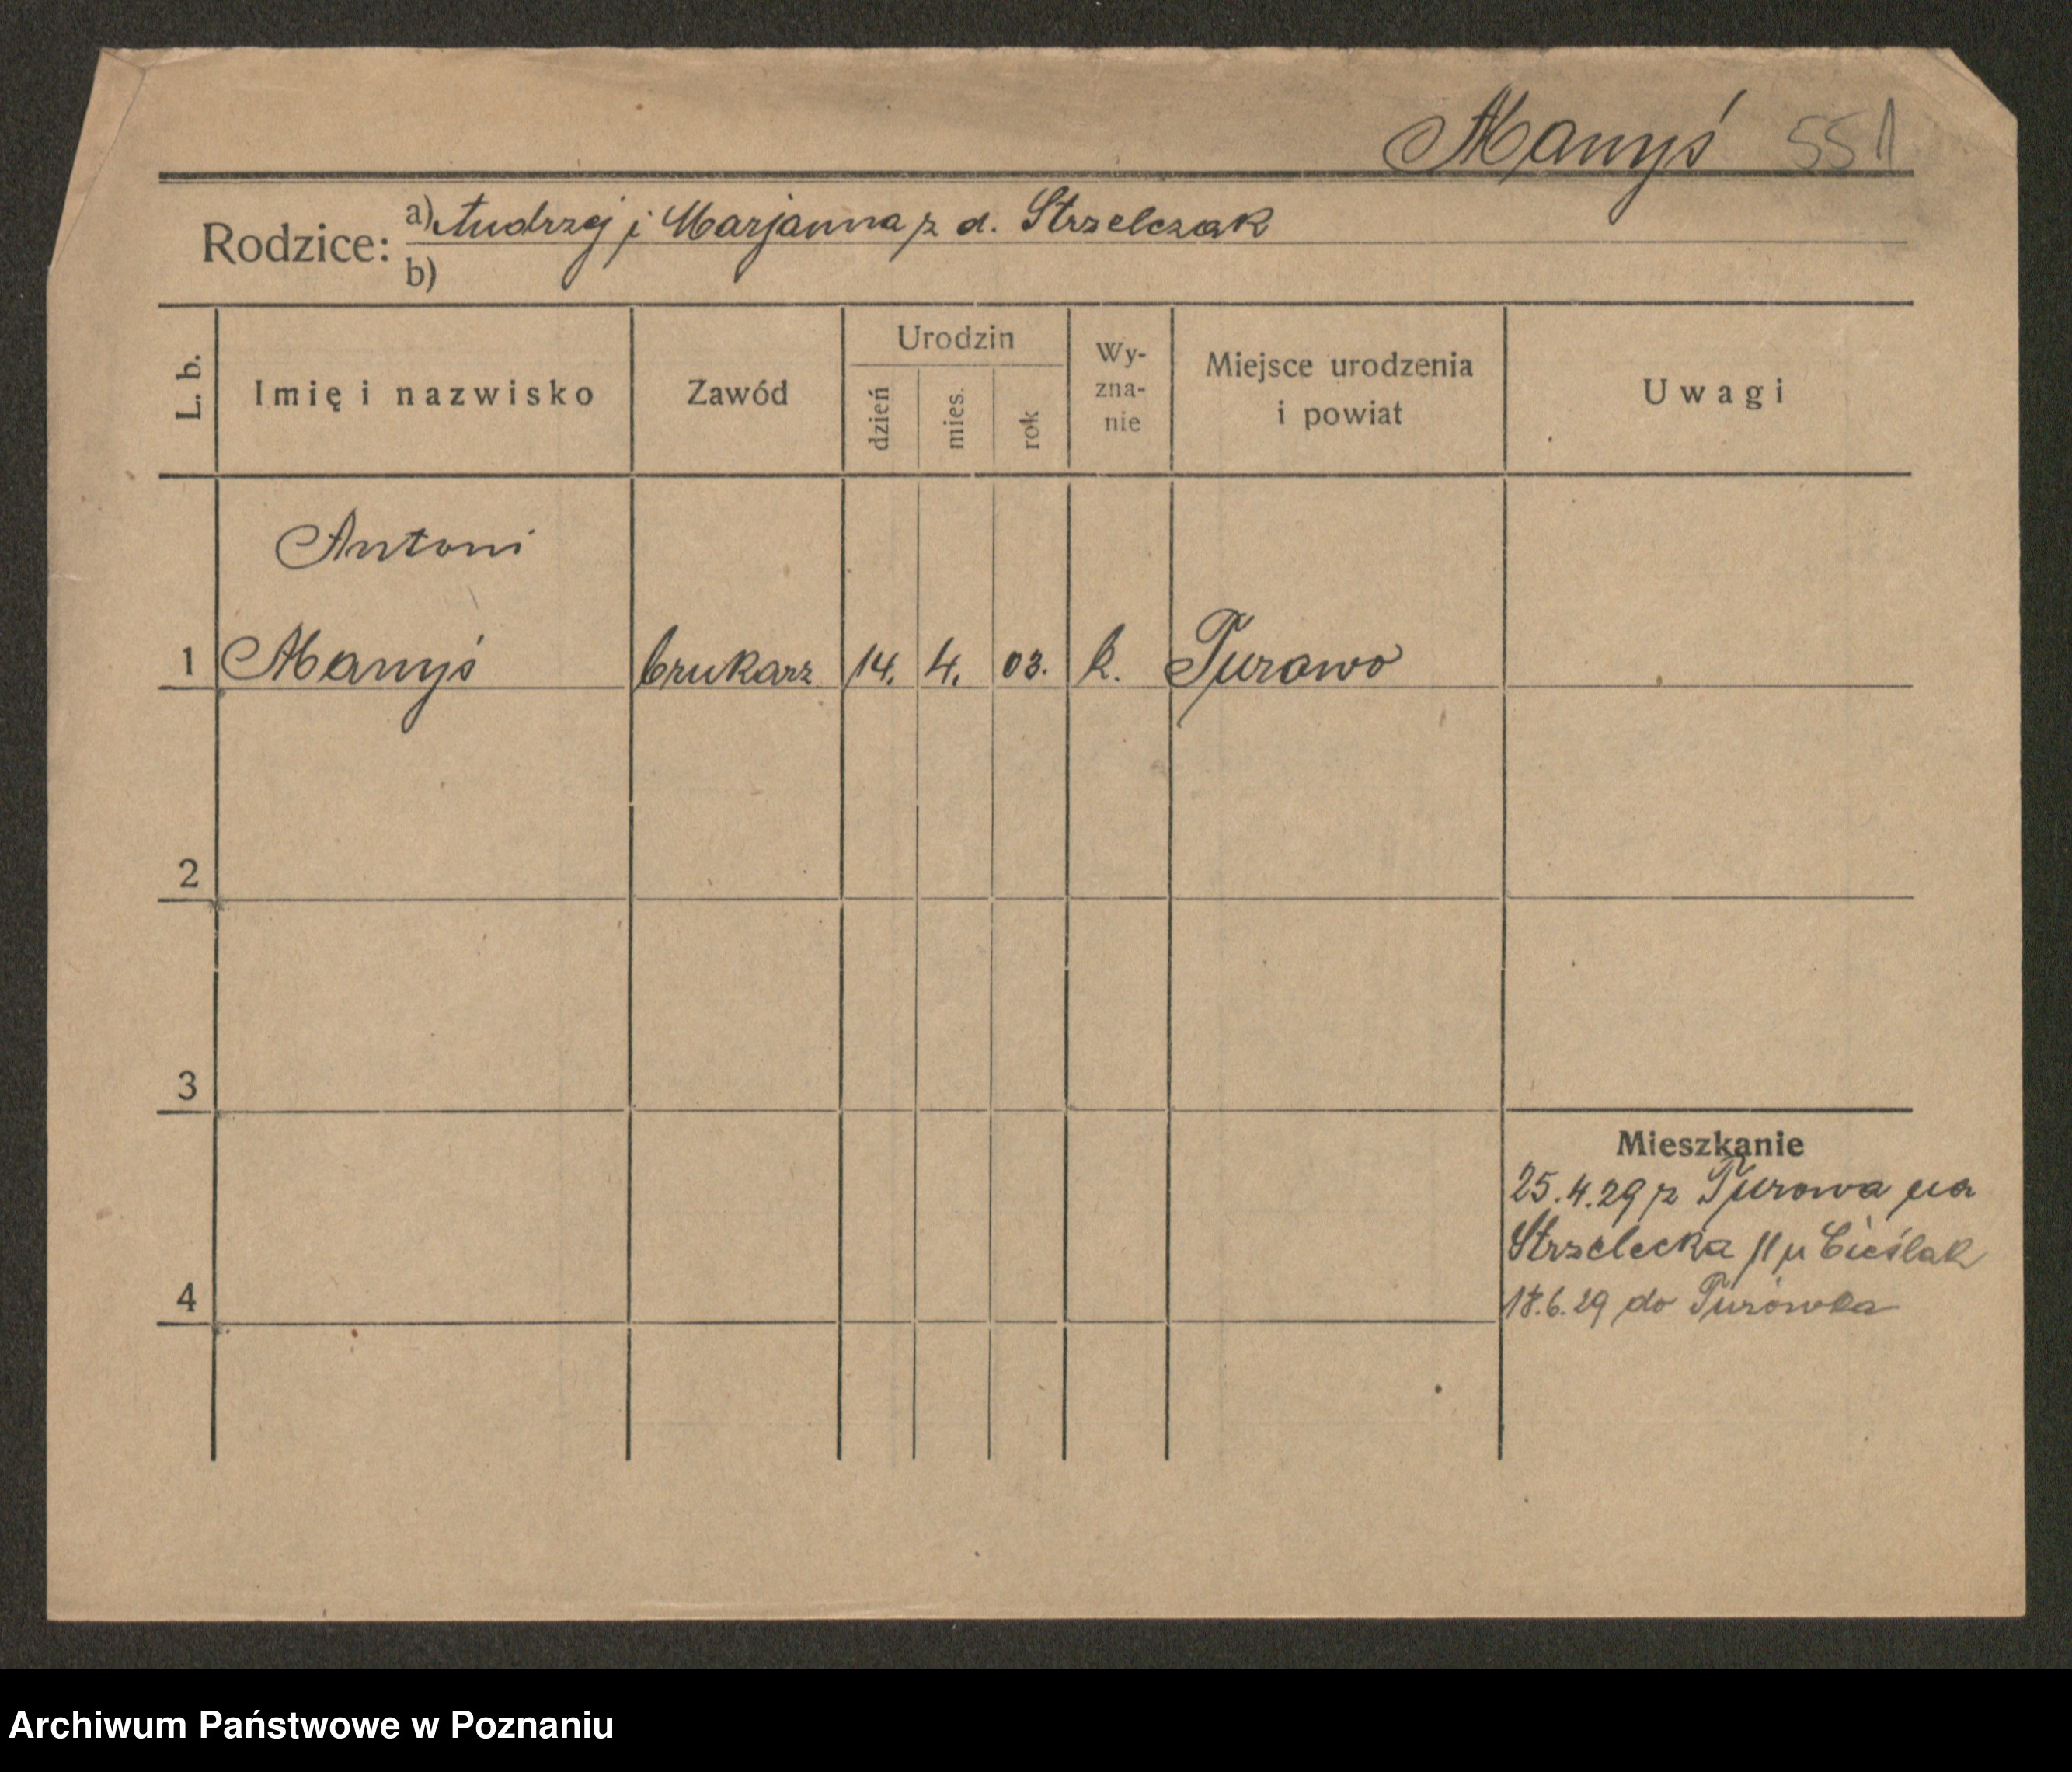 Manyś 551
Rodzice: a) Andrzej i Marjanna z d. Strzelczak
b)
L. b. Imię i nazwisko Zawód Urodzin dzień mies. rok Wy-zna-nie Miejsce urodzenia i powiat Uwagi
Antoni
1 Manyś brukarz 14. 4. 03. k. Turowo
2
3
Mieszkanie
25.4.29 z Turowa na
Strzelecka 11 u Cieślak
4 18.6.29 do Turówka
Archiwum Państwowe w Poznaniu